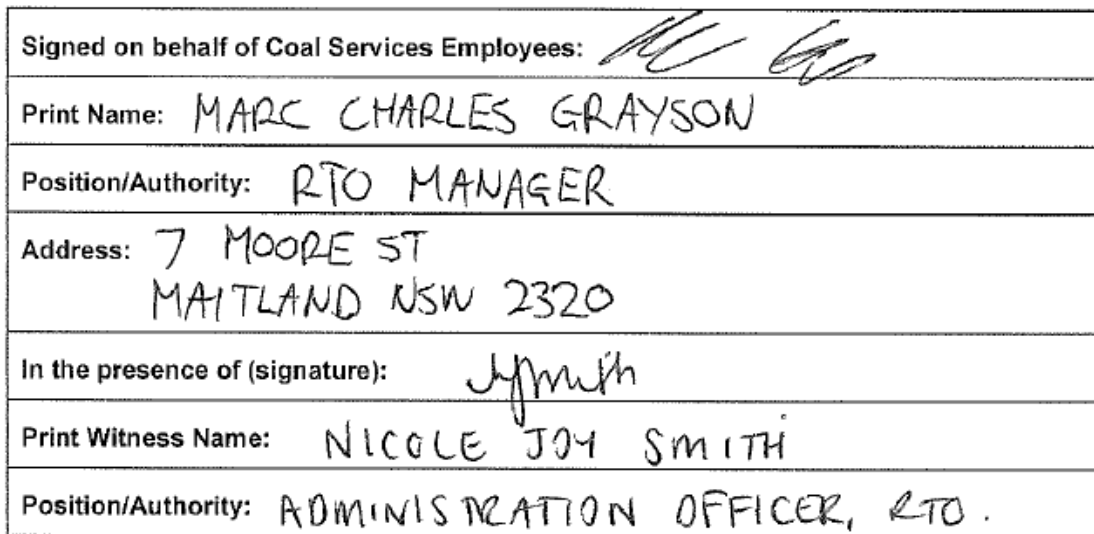 Signed on behalf of Coal Services Employees:
Print Name: MARC CHARLES GRAYSON
Position/Authority: RTO MANAGER
Address: 7 MOORE ST
MAITLAND NSW 2320
In the presence of (signature): NJSmith
Print Witness Name: NICOLE JOY SMITH
Position/Authority: ADMINISTRATION OFFICER, RTO.